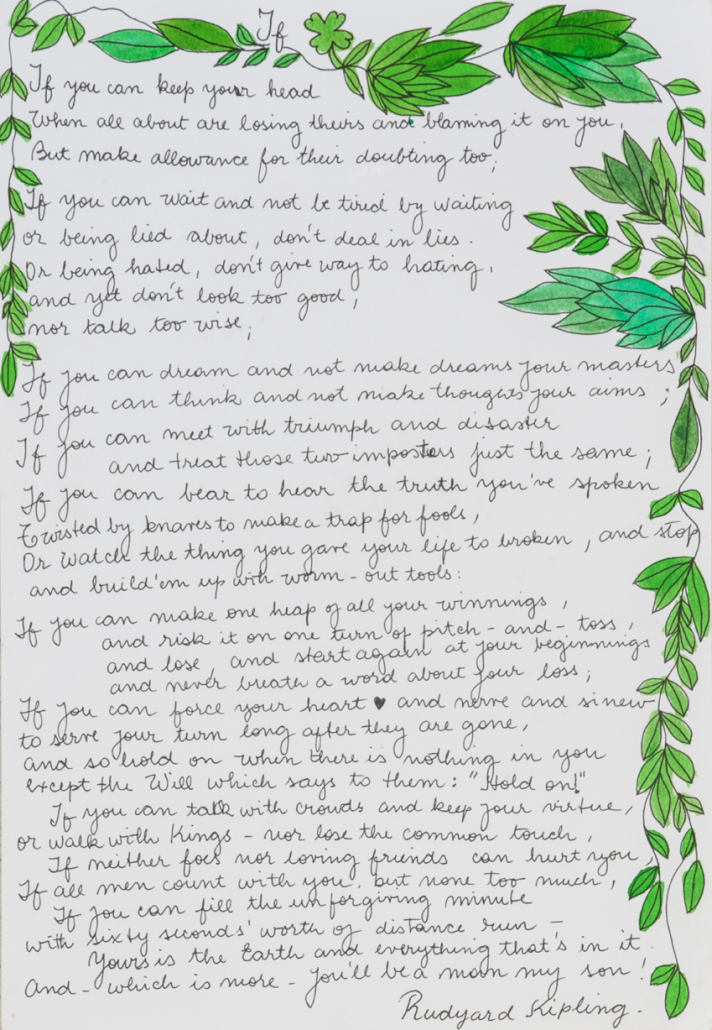 If
If you can keep your head
When all about are losing theirs and blaming it on you,
But make allowance for their doubting too;
If you can wait and not be tired by waiting
or being lied about, don't deal in lies.
Or being hated, don't give way to hating,
and yet don't look too good,
nor talk too wise;
If you can dream and not make dreams your masters
If you can think and not make thoughts your aims;
If you can meet with triumph and disaster
and treat those two impostors just the same;
If you can bear to hear the truth you've spoken
Twisted by knaves to make a trap for fools,
Or watch the thing you gave your life to broken, and stop
and build'em up with worm-out tools:
If you can make one heap of all your winnings,
and risk it on one turn of pitch-and-toss,
and lose, and start again at your beginnings
and never breath a word about your loss;
If you can force your heart ♥ and nerve and sinew
to serve your turn long after they are gone,
and so hold on when there is nothing in you
except the Will which says to them: "Hold on!"
If you can talk with crowds and keep your virtue,
or walk with Kings - nor lose the common touch,
If neither foes nor loving friends can hurt you,
If all men count with you, but none too much,
If you can fill the unforgiving minute
with sixty seconds' worth of distance run –
Yours is the Earth and everything that's in it.
And - which is more - you'll be a man my son!
Rudyard Kipling.